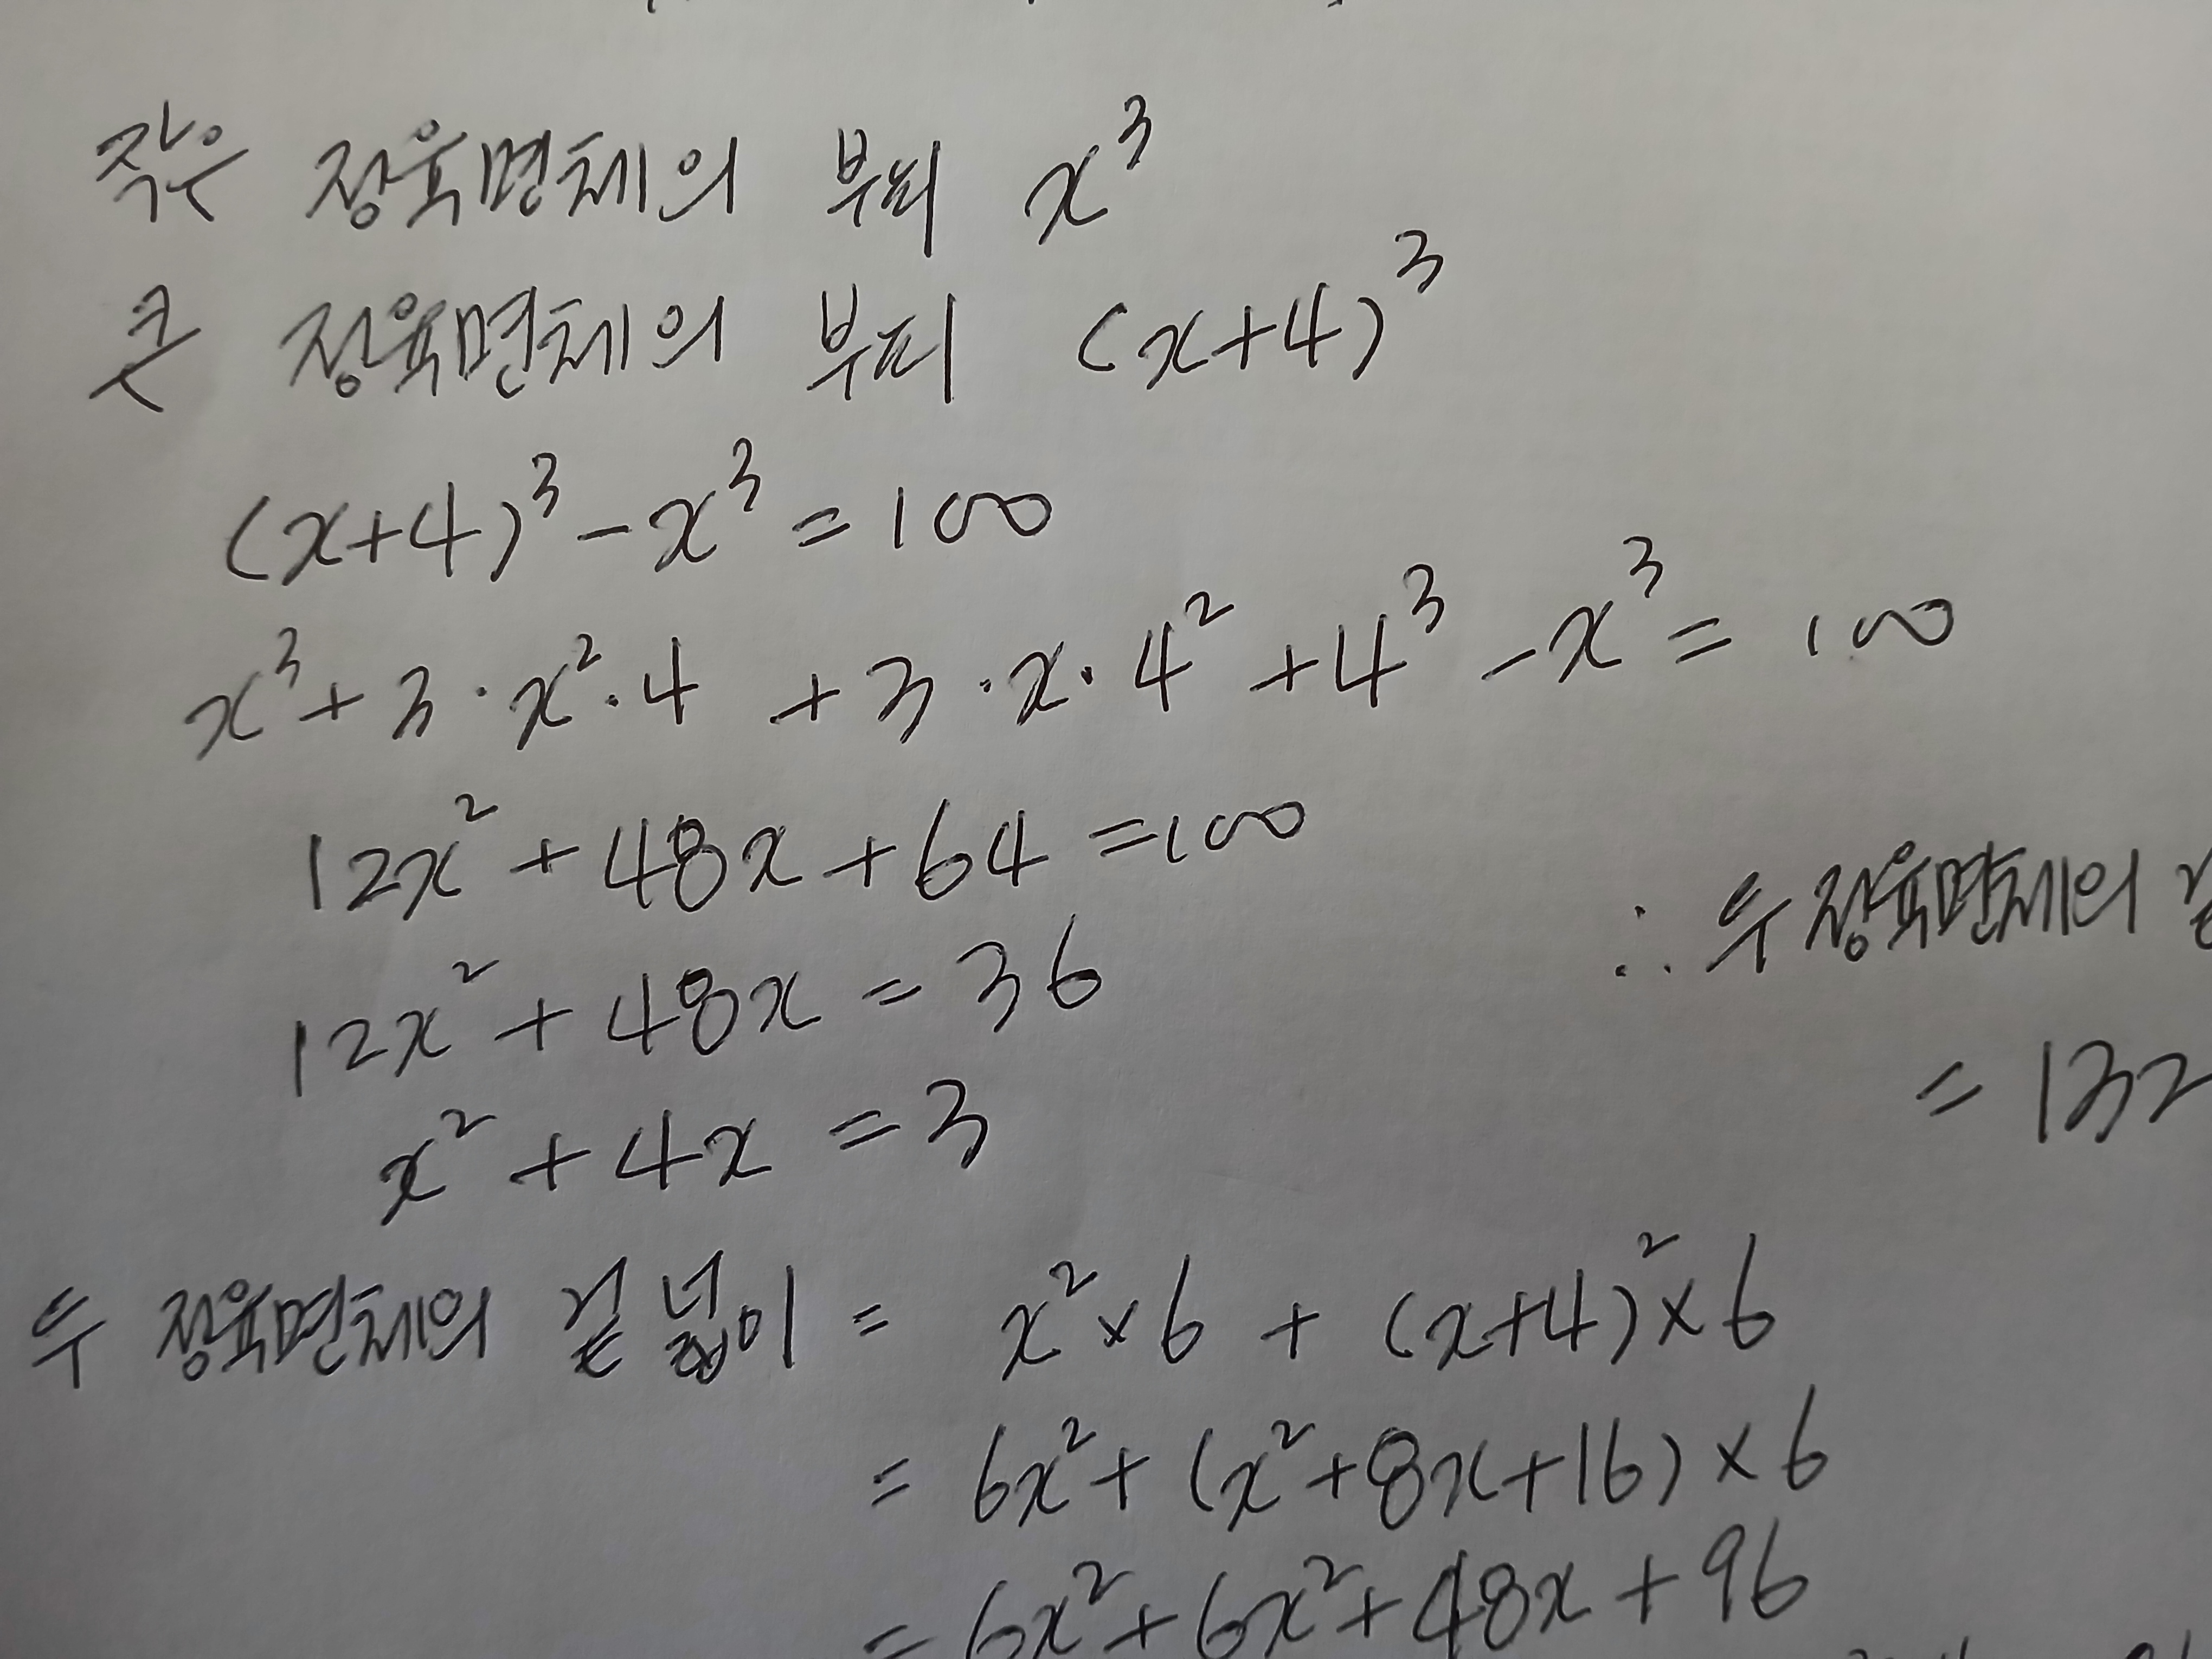 작은 정육면체의 부피 x³
큰 정육면체의 부피 (x+4)³
(x+4)³-x³=100
x³+3·x²·4+3·x·4²+4³-x³=100
12x²+48x+64=100
12x²+48x=36
x²+4x=3
두 정육면체의 겉넓이= x²×6+(x+4)²×6
= 6x²+(x²+8x+16)×6
= 6x²+6x²+48x+96
∴ 두 정육면체의
= 132